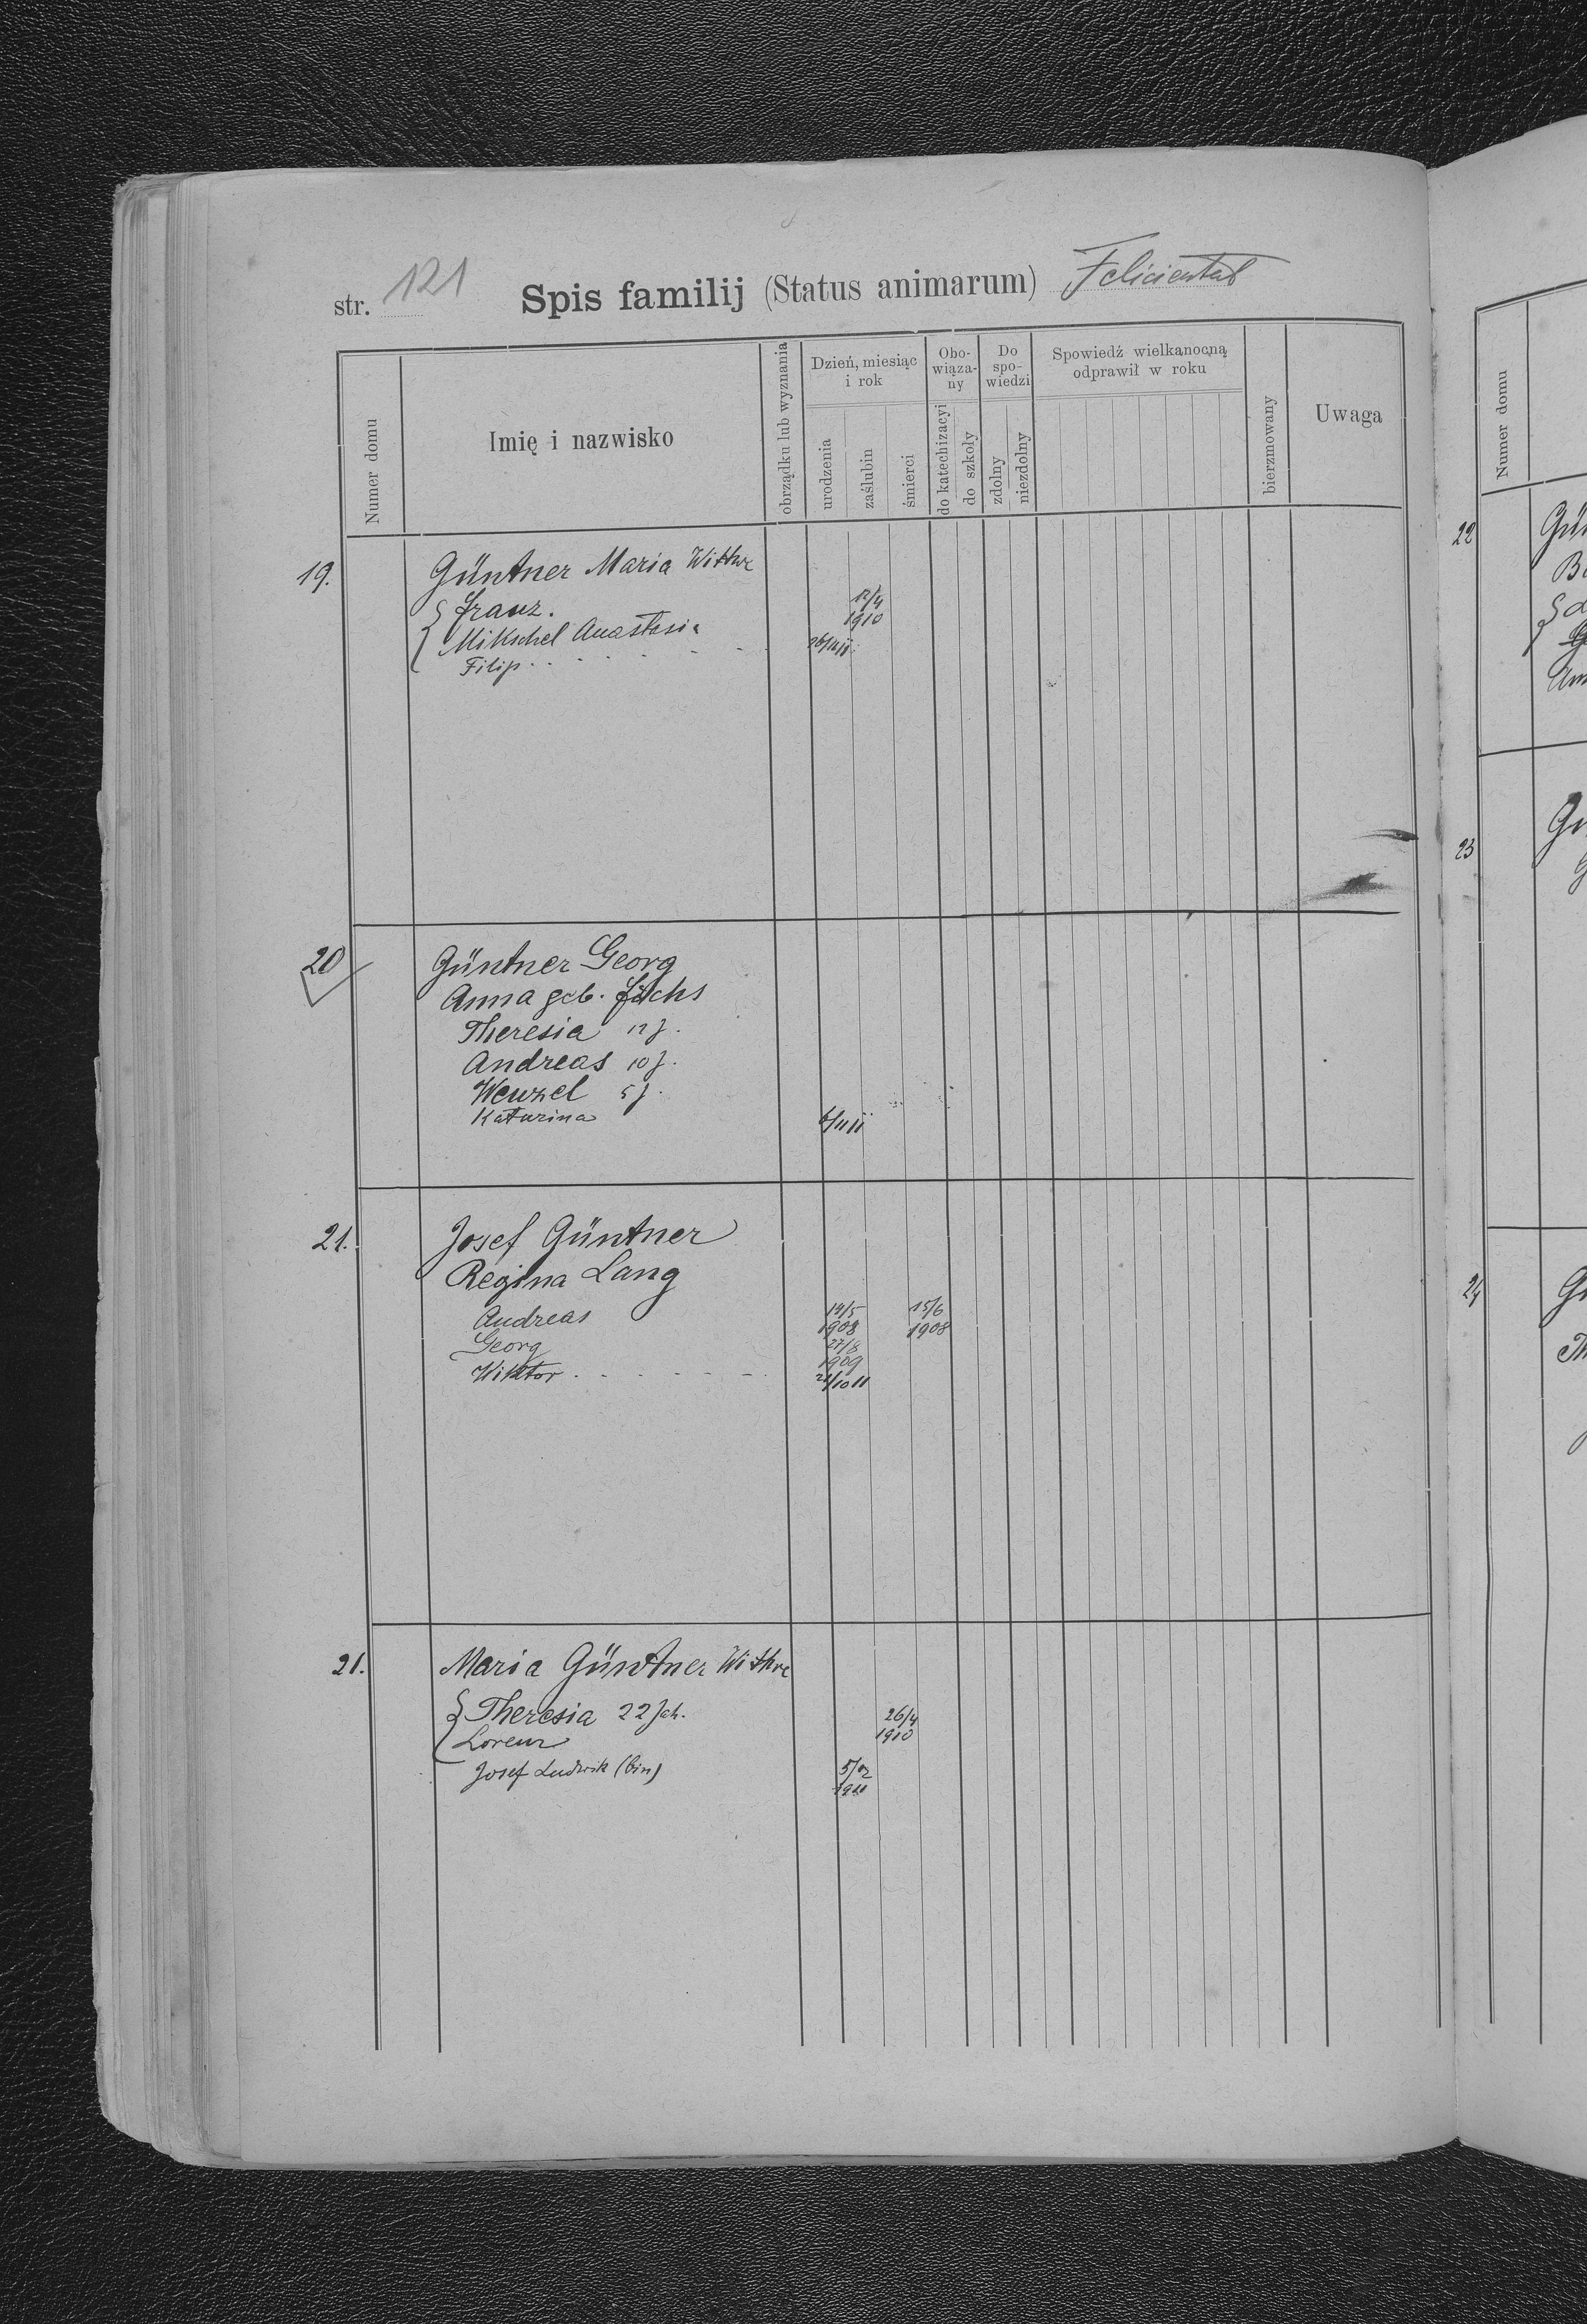 str. 121 Spis familij (Status animarum) Felicienthal
Numer domu
Imię i nazwisko
obrządku lub wyznania
Dzień, miesiąc i rok
urodzenia
zaślubin
śmierci
Obo-wiąza-ny
do katechizacyi
do szkoły
Do spo-wiedzi
zdolny
niezdolny
Spowiedź wielkanocną odprawił w roku
bierzmowany
Uwaga
19. Güntner Maria Wittwe
Franz. 12/4 1910
Mikschel Anastasia
Filip 26/11 11
20 Güntner Georg
Anna geb. Füchs
Theresia 12 J.
Andreas 10 J.
Wenzel 5 J.
Katarina 6/11 11
21. Josef Güntner
Regina Lang
Andreas 14/5 1908 15/6 1908
Georg 27/8 1909
Wiktor 21/10 11
21. Maria Güntner Withve
Theresia 22 Jah. 26/4 1910
Lorenz
Josef Ludwik (bin) 5/2 1911
Numer domu
22
23
24